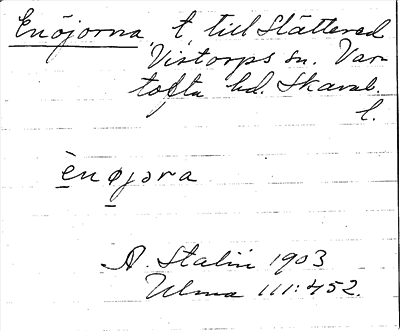 Enöjorna t, till Slättered
Vistorps sn. Var-
tofta hd. Skarab.
l.
ènøjɔra
A. Stalin 1903
Ulma 111:452.